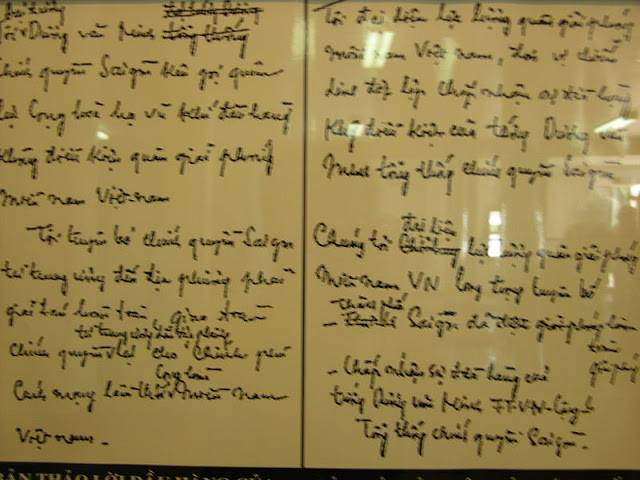 Đại tướng
Tôi Dương văn Minh tổng thống
Chính quyền Sài gòn kêu gọi quân
lực Cộng hoà hạ vũ khí đầu hàng
không điều kiện quân giải phóng
miền nam Việt nam
Tôi tuyên bố chính quyền Sài gòn
từ trung ương đến địa phương phải
giải tán hoàn toàn giao toàn
từ trung ương đến địa phương
chính quyền lại cho chính phủ
Cộng hoà
Cách mạng lâm thời miền nam
Việt nam.
Tôi đại diện lực lượng quân giải phóng
miền nam Việt nam,
chấp nhận sự đầu hàng
không điều kiện của tướng Dương văn
Minh tổng thống chính quyền Sài gòn
đại diện
Chúng tôi lực lượng quân giải phóng
miền nam VN long trọng tuyên bố
Thành phố
- Sài gòn đã được giải phóng hoàn
toàn
- Chấp nhận sự đầu hàng của
tướng Dương văn Minh
Tổng thống chính quyền Sài gòn.
BẢN THẢO LỜI ĐẦU HÀNG CỦA